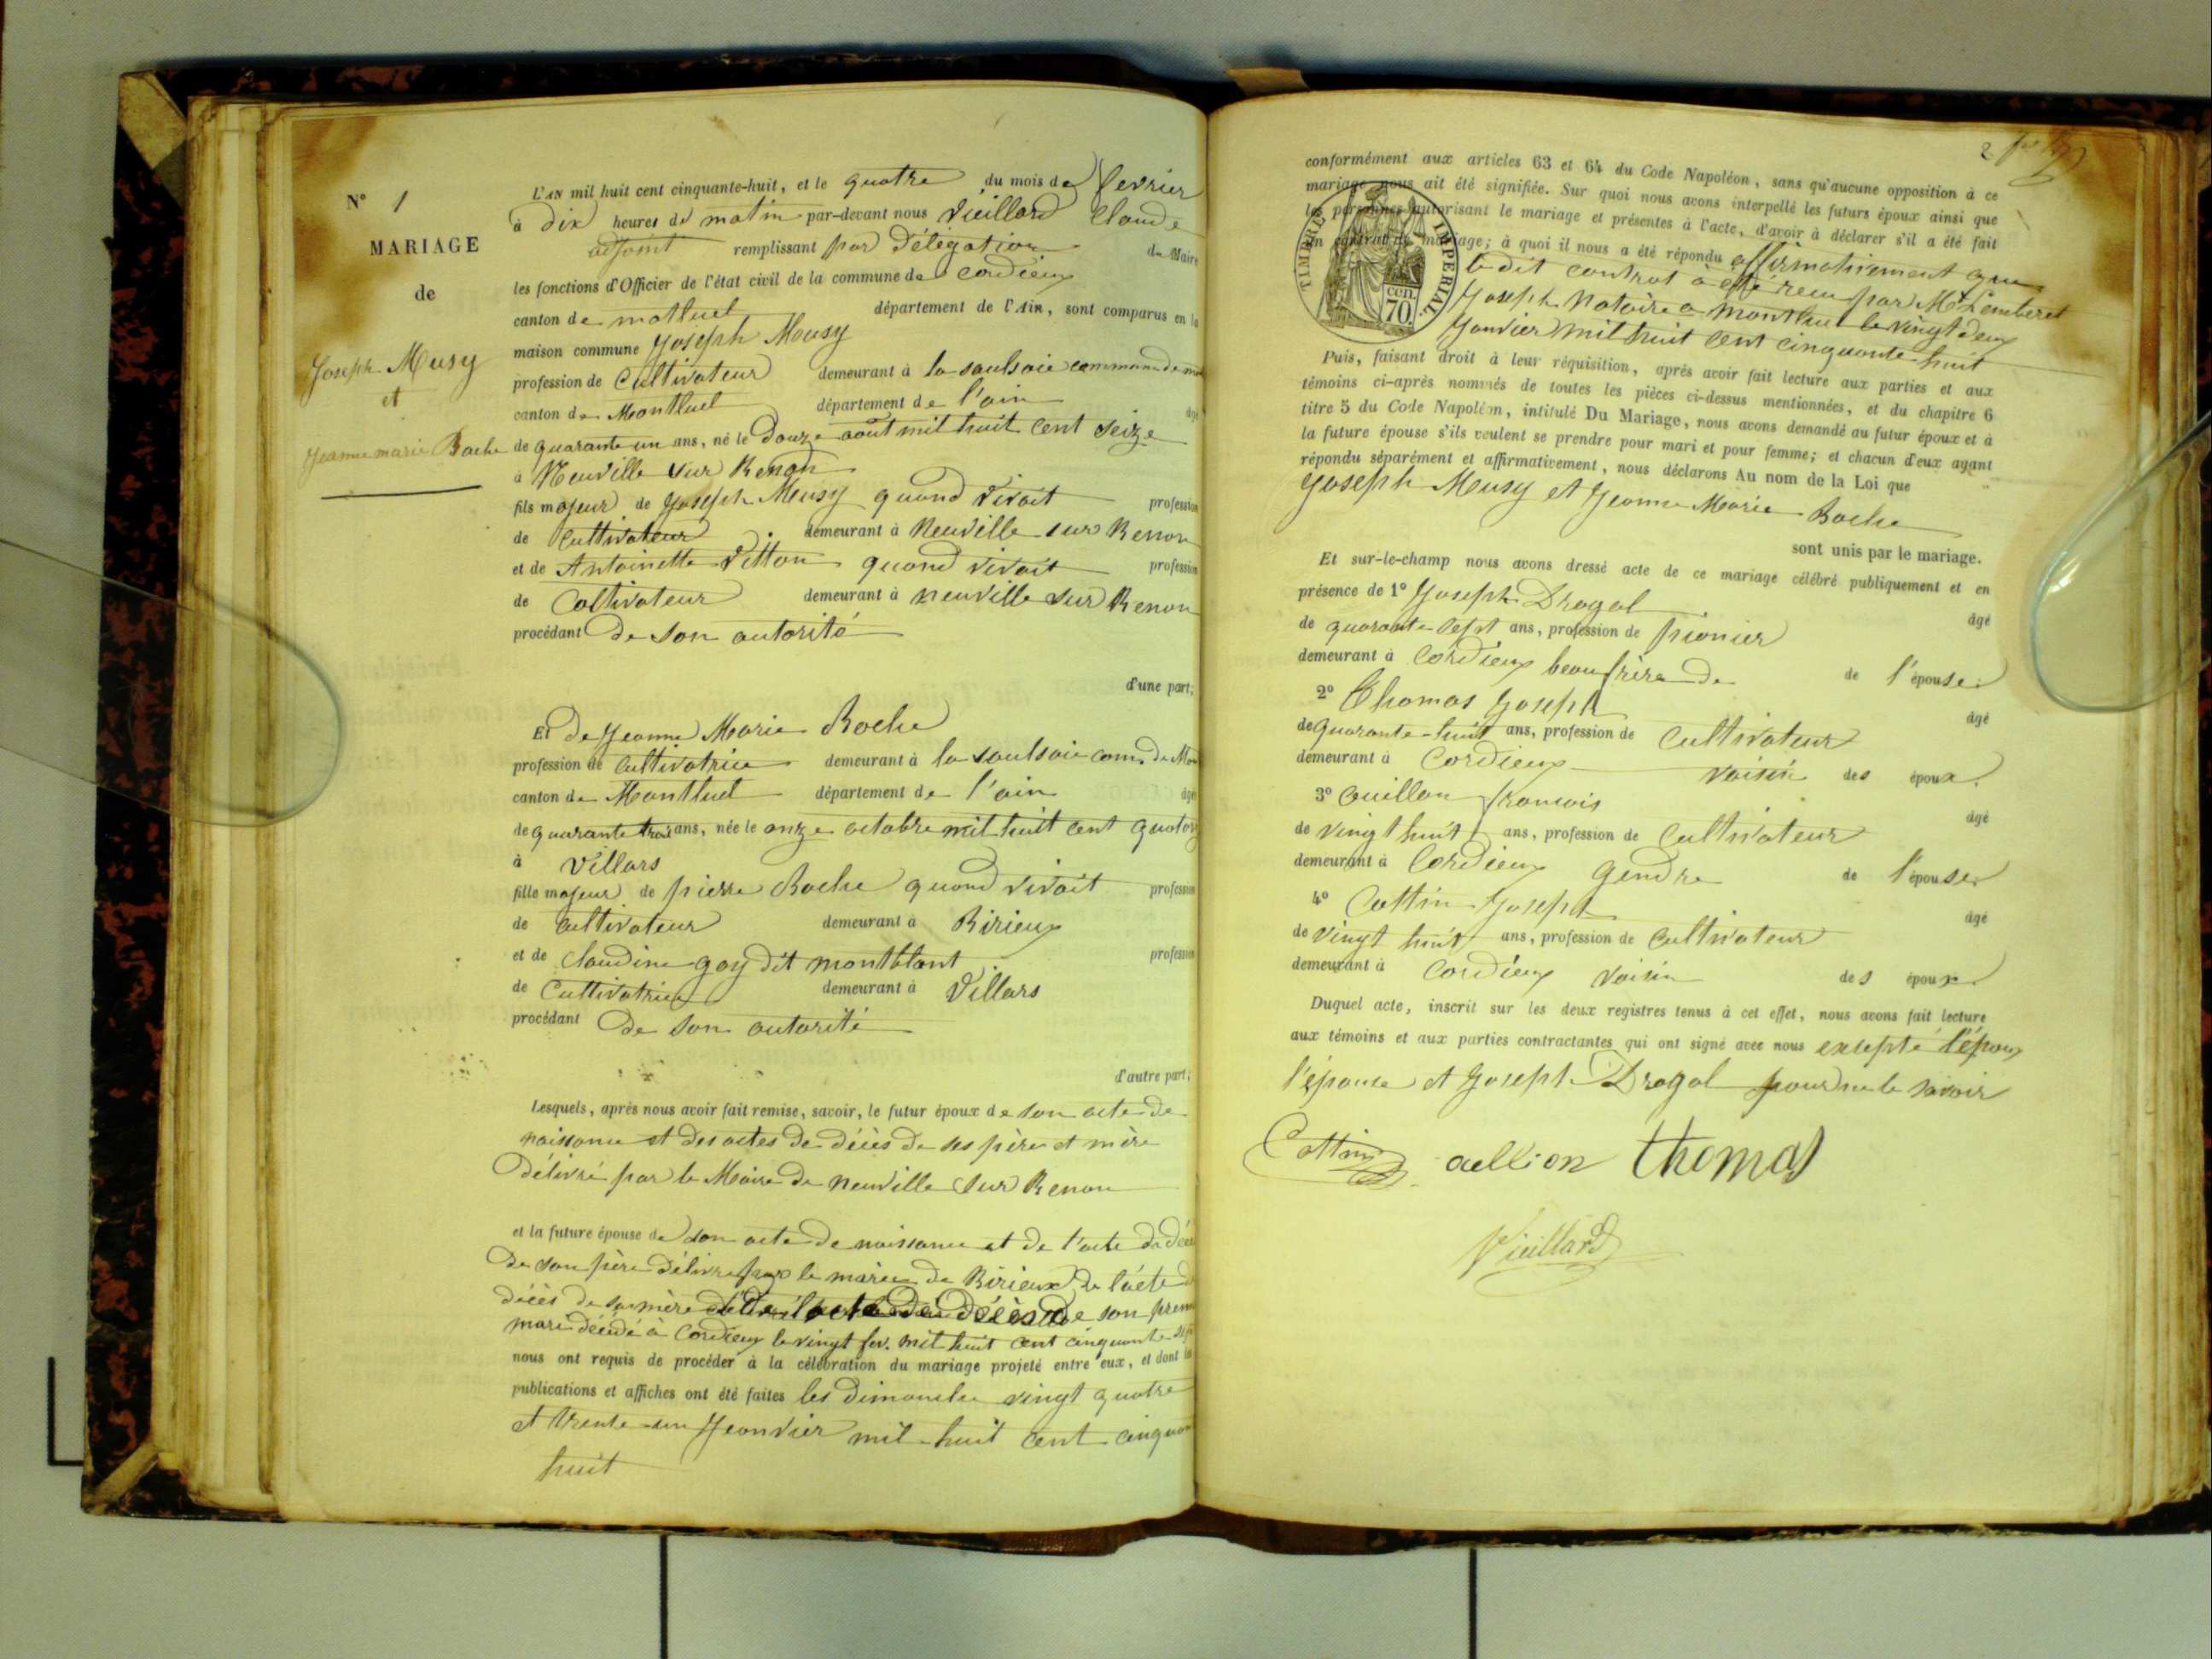 N° 1
MARIAGE
de
Joseph Musy
et
Jeanne marie Roche
L'AN mil huit cent cinquante-huit, et le quatre du mois de fevrier
à dix heures de matin par-devant nous Vieillard Claude
adjoint remplissant par délégation du Maire
les fonctions d'Officier de l'état civil de la commune de cordieux
canton de motluel département de l'Ain, sont comparus en la
maison commune Joseph Musy
profession de Cultivateur demeurant à la saulsaie commune de
canton de Montluel département de l'ain âgé
de quarante un ans, né le Douze août mil huit cent seize
à Neuville sur Renon
fils majeur de Joseph Musy quand vivait profession
de Cultivateur demeurant à Neuville sur Renon
et de Antoinette Vitton quand vivait profession
de Coltivateur demeurant à neuville sur Renon
procédant de son autorité
d'une part;
Et de Jeanne Marie Roche
profession de Cultivatrice demeurant à la saulsaie com. de
canton de Montluel département de l'ain âgé
de quarante trois ans, née le onze octobre mil huit cent quator
à Villars
fille majeur de pierre Roche quand vivait profession
de Cultivateur demeurant à Birieux
et de claudine goy dit montblant profession
de Cultivatrice demeurant à Villars
procédant De son autorité
d'autre part;
Lesquels, après nous avoir fait remise, savoir, le futur époux de son acte de
naissance et des actes de décès de ses père et mère
Délivré par le Maire de neuville sur Renon
et la future épouse de son acte de naissance et de l'acte de décè
de son père délivré par le maire de Birieux de l'acte d
décès de sa mère de l'acte de décès de son prem
mari décédé à Cordieux le vingt fev. mil huit cent cinquante
nous ont requis de procéder à la célébration du mariage projeté entre eux, et dont les
publications et affiches ont été faites les dimanche vingt quatre
et trente-un Jeanvier mil-huit cent cinquan
huit
2
conformément aux articles 63 et 64 du Code Napoléon, sans qu'aucune opposition à ce
mariage nous ait été signifiée. Sur quoi nous avons interpellé les futurs époux ainsi que
les personnes autorisant le mariage et présentes à l'acte, d'avoir à déclarer s'il a été fait
un contrat de mariage; à quoi il nous a été répondu affirmativement que
TIMBRE IMPERIAL
70 cen.
le dit contrat à été recu par Me
Joseph Notaire a montluel le vingt deux
Janvier mil huit cent cinquante-huit
Puis, faisant droit à leur réquisition, après avoir fait lecture aux parties et aux
témoins ci-après nommés de toutes les pièces ci-dessus mentionnées, et du chapitre 6
titre 5 du Code Napoléon, intitulé Du Mariage, nous avons demandé au futur époux et à
la future épouse s'ils veulent se prendre pour mari et pour femme; et chacun d'eux ayant
répondu séparément et affirmativement, nous déclarons Au nom de la Loi que
Joseph Musy et Jeanne Marie Roche
sont unis par le mariage.
Et sur-le-champ nous avons dressé acte de ce mariage célébré publiquement et en
présence de 1° Joseph Dragol âgé
de quarante-sept ans, profession de pionier
demeurant à Cordieux beaufrère de de l'épouse
2° Thomas Joseph âgé
de quarante-huit ans, profession de Cultivateur
demeurant à Cordieux voisin des époux.
3° Cuillon francois âgé
de vingt huit ans, profession de Cultivateur
demeurant à Cordieux Gendre de l'épouse
4° Cottin Joseph âgé
de vingt huit ans, profession de Cultivateur
demeurant à Cordieux voisin des époux.
Duquel acte, inscrit sur les deux registres tenus à cet effet, nous avons fait lecture
aux témoins et aux parties contractantes qui ont signé avec nous excepté l'époux
l'épouse et Joseph Dragol pour ne le savoir
Cottin aullion thomas
Vieillard